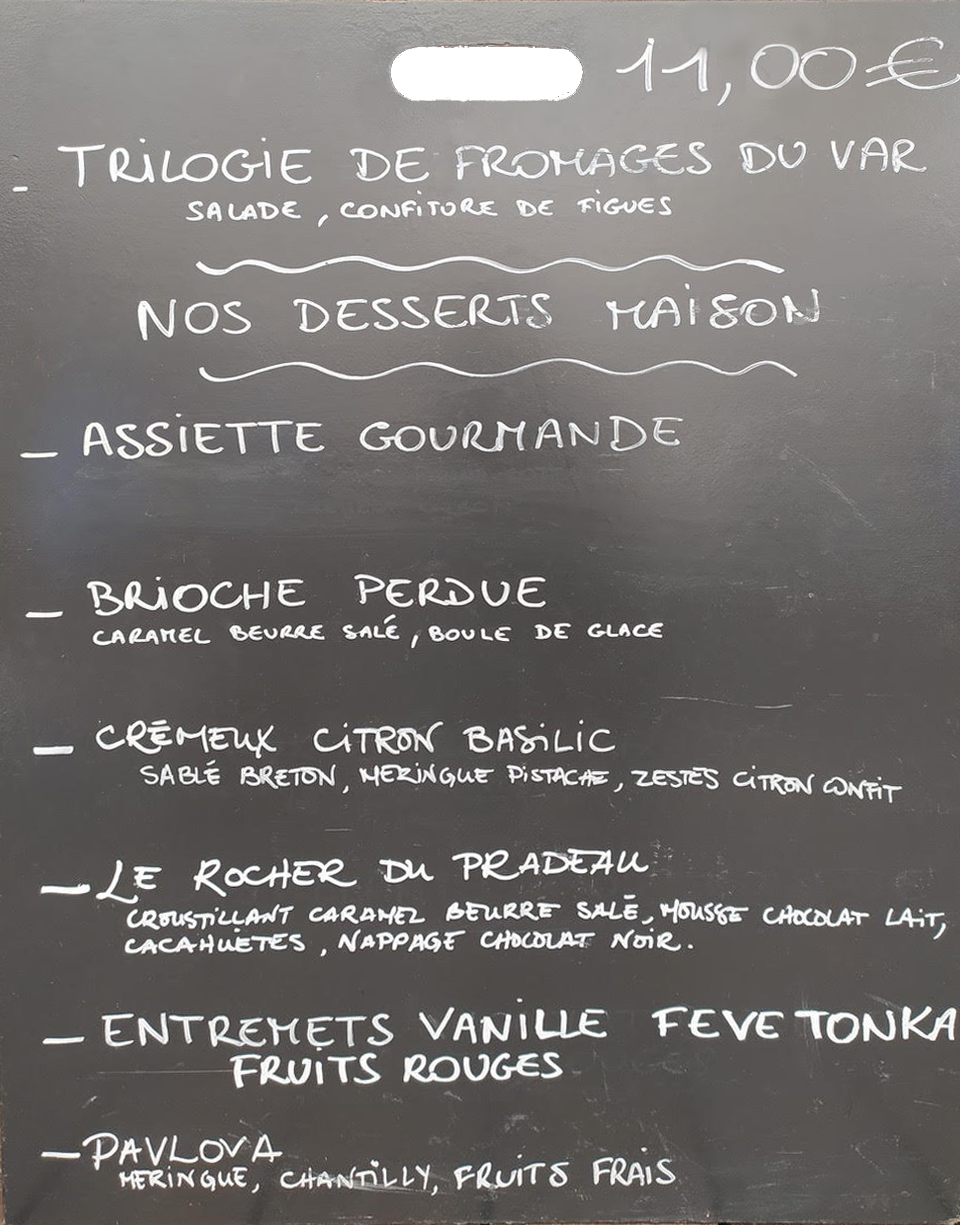 11,00€
- TRILOGIE DE FROMAGES DU VAR
SALADE, CONFITURE DE FIGUES
NOS DESSERTS MAISON
- ASSIETTE GOURMANDE
- BRIOCHE PERDUE
CARAMEL BEURRE SALÉ, BOULE DE GLACE
- CRÉMEUX CITRON BASILIC
SABLÉ BRETON, MERINGUE PISTACHE, ZESTES CITRON CONFIT
- LE ROCHER DU PRADEAU
CROUSTILLANT CARAMEL BEURRE SALÉ, MOUSSE CHOCOLAT LAIT,
CACAHUETES, NAPPAGE CHOCOLAT NOIR.
- ENTREMETS VANILLE FEVE TONKA
FRUITS ROUGES
- PAVLOVA
MERINGUE, CHANTILLY, FRUITS FRAIS